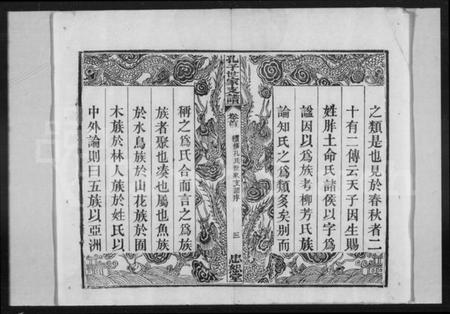 之類是也見於春秋者二
十有二傳云天子因生賜
姓胙土命氏諸侯以字爲
諡因以爲族考柳芳氏族
論知氏之爲類多矣別而
孔子世家支譜
卷首
孔氏世家支譜序
三
忠恕堂
稱之爲氏合而言之爲族
族者聚也湊也屬也魚族
於水鳥族於山花族於囿
木族於林人族於姓氏以
中外論則曰五族以亞洲